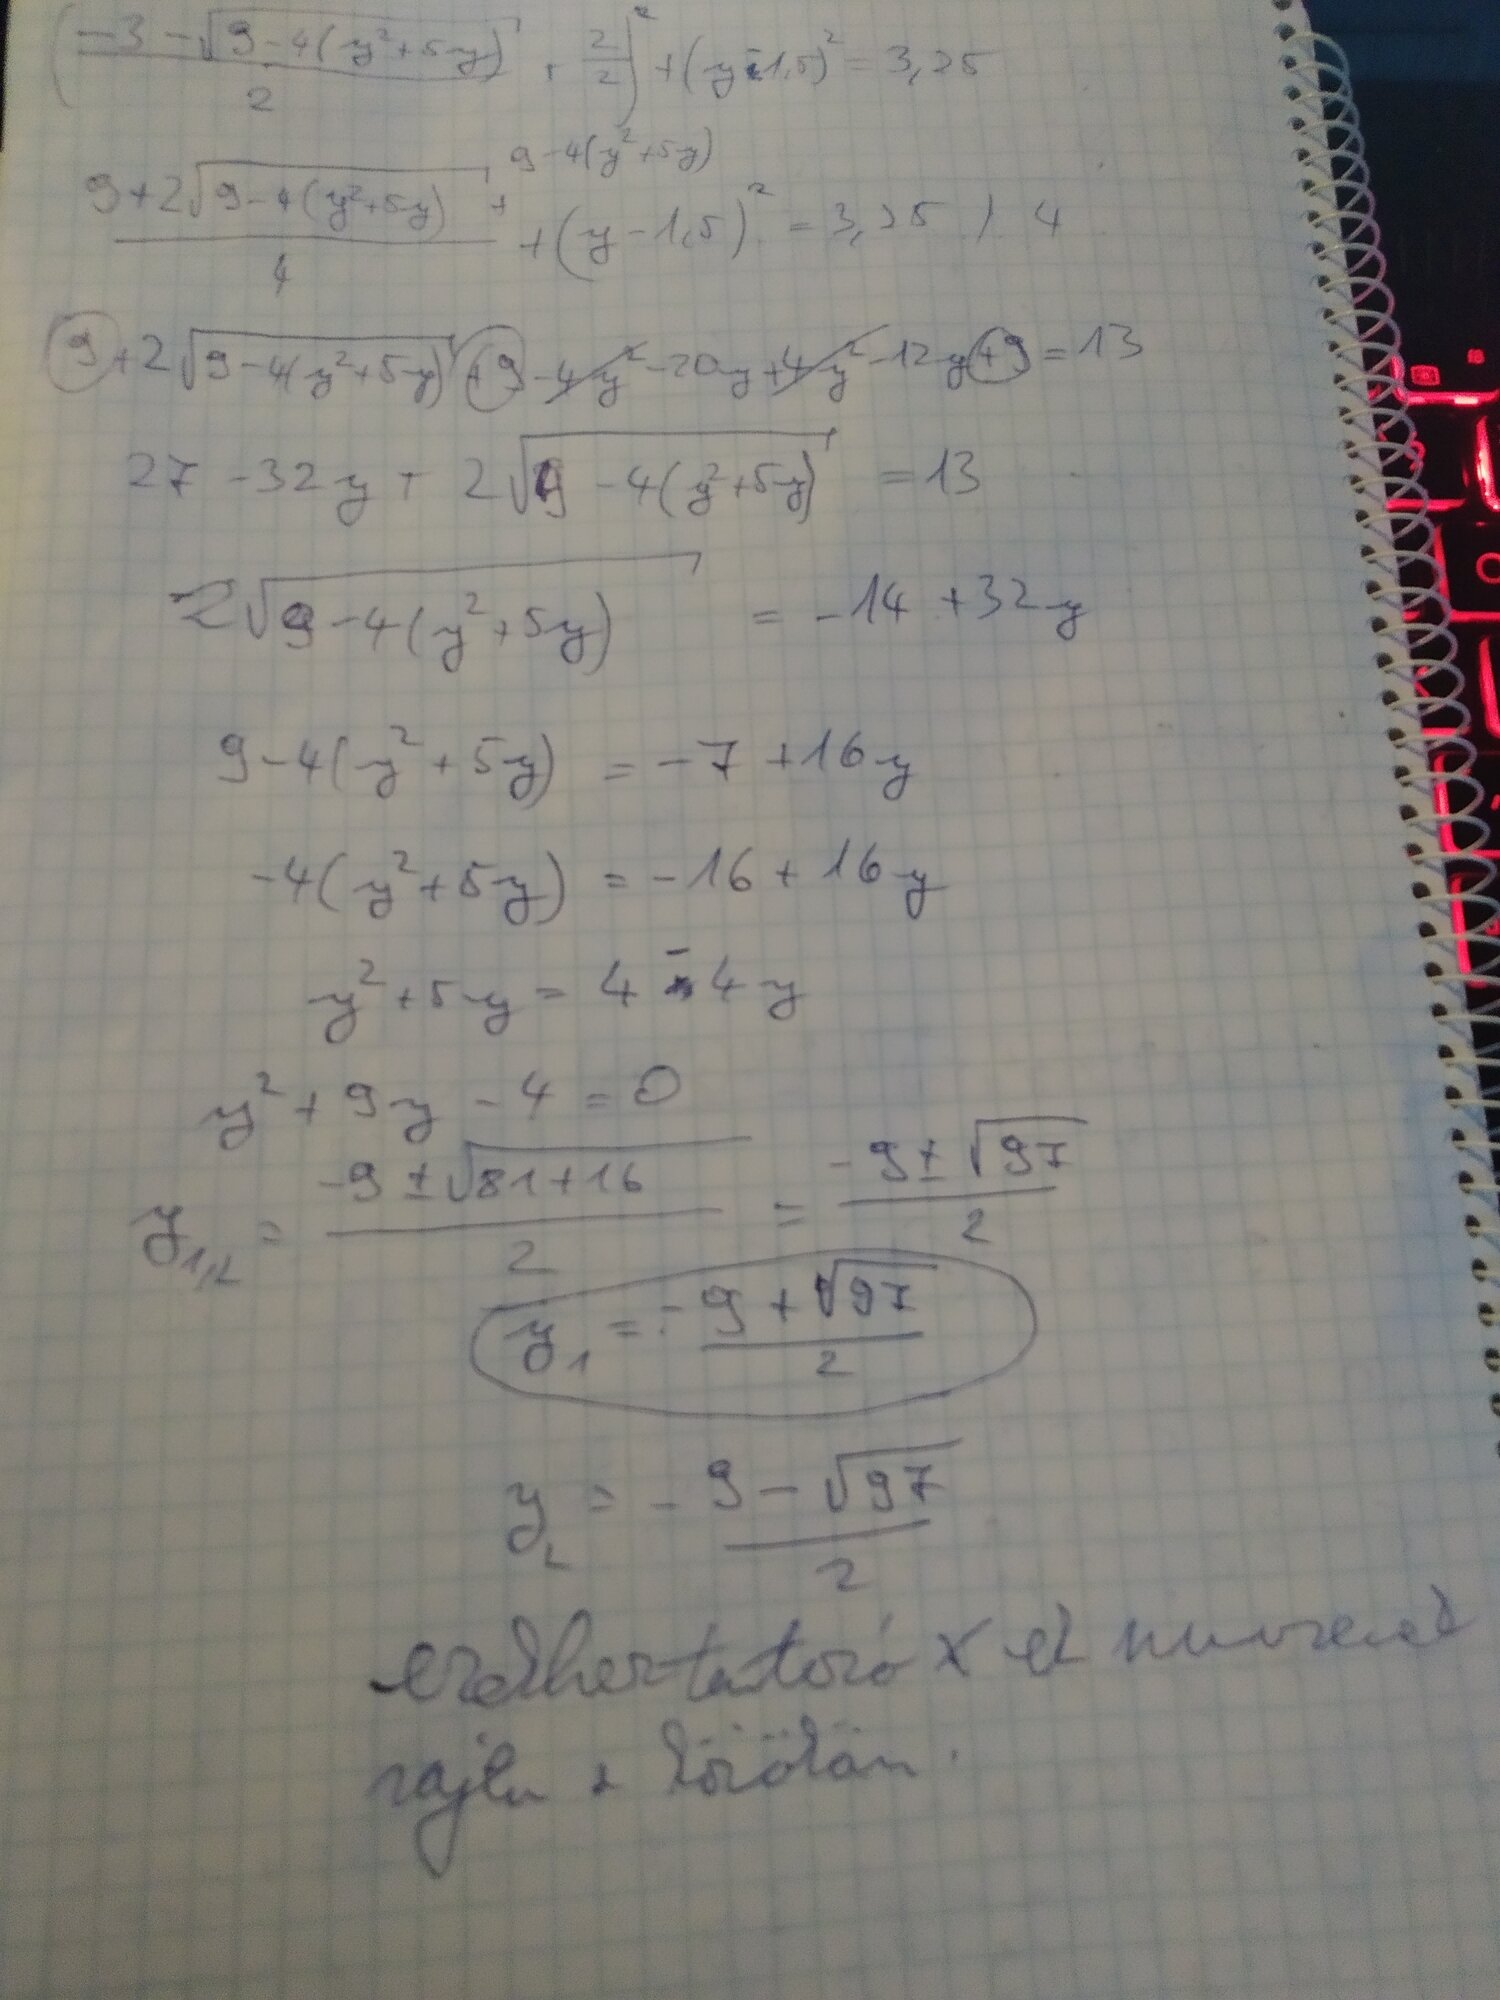 (-3-√(9-4(y²+5y))/2 + 2/2)² + (y-1,5)² = 3,25
9-4(y²+5y)
9+2√(9-4(y²+5y)) + /4 + (y-1,5)² = 3,25 / 4
9+2√(9-4(y²+5y)) +9-4y²-20y+4y²-12y+9=13
27-32y+2√(9-4(y²+5y)) =13
2√(9-4(y²+5y)) = -14+32y
9-4(y²+5y) = -7+16y
-4(y²+5y) = -16+16y
y²+5y = 4-4y
y²+9y-4=0
y1,2 = (-9±√(81+16))/2 = (-9±√97)/2
y1 = (-9+√97)/2
y2 = (-9-√97)/2
rajta a körökön.